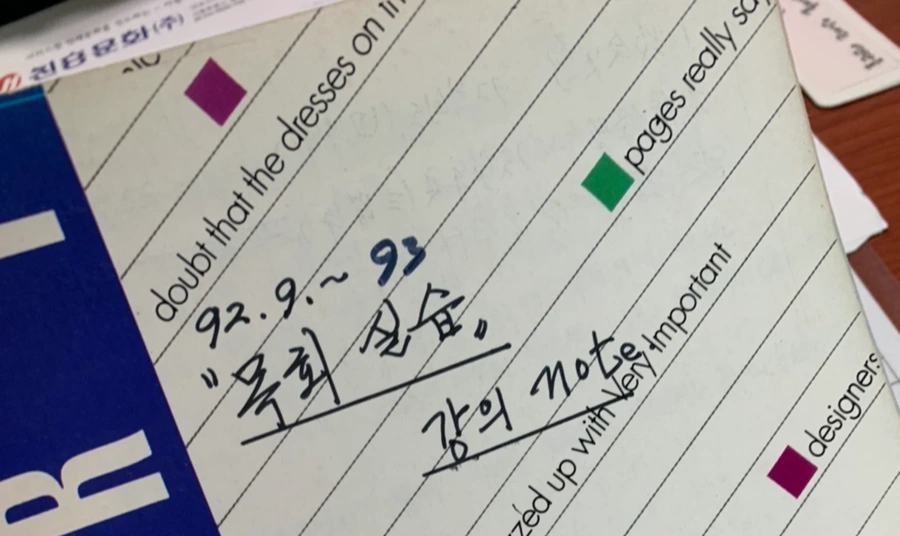 진흥문화(주)
doubt that the dresses on
pages really
92.9.~ 93
"목회 실습"
강의 note
zed up with Very Important
designers
R